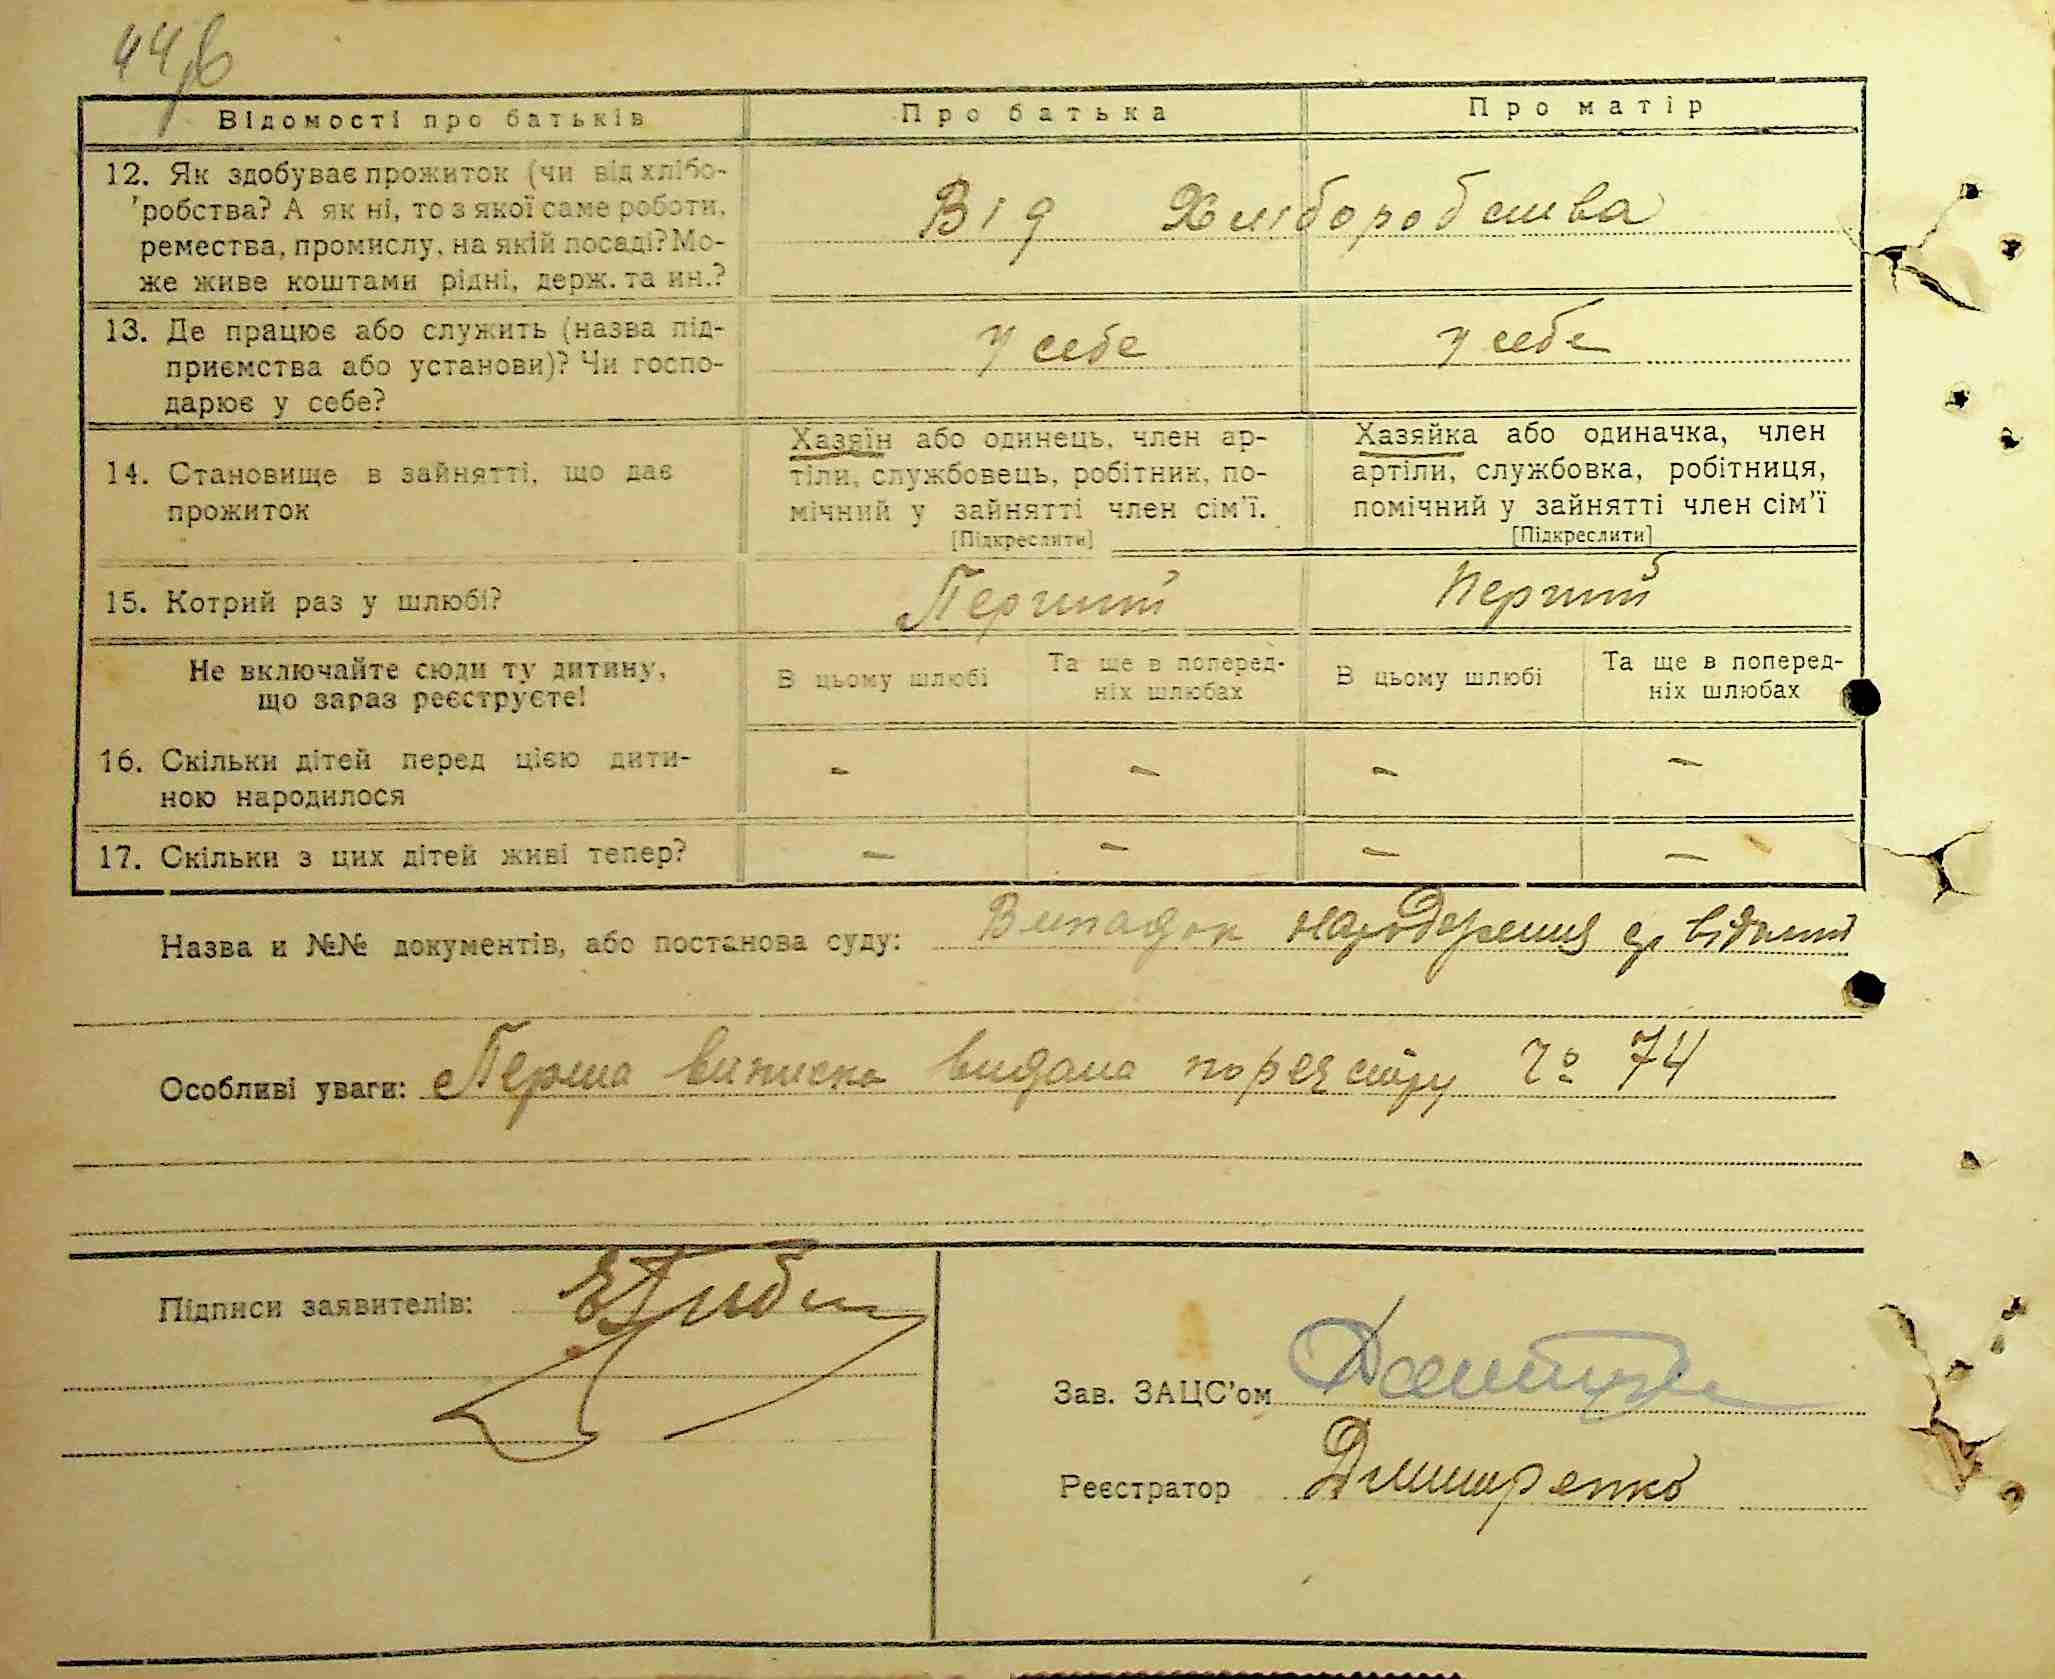 Відомості про батьків
Про батька
Про матір
12. Як здобуває прожиток (чи від хлібо-
робства? А як ні, то з якої саме роботи,
ремества, промислу, на якій посаді? Мо-
же живе коштами рідні, держ. та ин.?
Від Хліборобства
13. Де працює або служить (назва під-
приємства або установи)? Чи госпо-
дарює у себе?
у себе
у себе
14. Становище в зайнятті, що дає
прожиток
Хазяїн або одинець, член ар-
тіли, службовець, робітник, по-
мічний у зайнятті член сім'ї.
[Підкреслити]
Хазяйка або одиначка, член
артіли, службовка, робітниця,
помічний у зайнятті член сім'ї
[Підкреслити]
15. Котрий раз у шлюбі?
Перший
Перший
Не включайте сюди ту дитину,
що зараз реєструєте!
В цьому шлюбі
Та ще в поперед-
ніх шлюбах
В цьому шлюбі
Та ще в поперед-
ніх шлюбах
16. Скільки дітей перед цією дити-
ною народилося
- - - -
17. Скільки з цих дітей живі тепер?
- - - -
Назва и №№ документів, або постанова суду: Випадок народження
Особливі уваги: Перша виписка видана по реєстру № 74
Підписи заявителів:
Зав. ЗАЦС'ом
Реєстратор Дмитренко